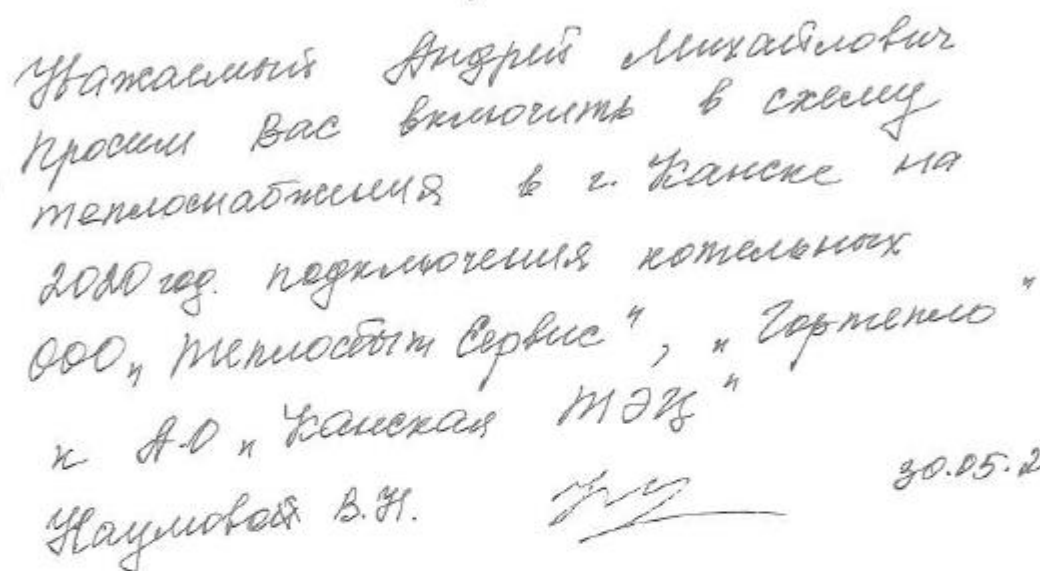 Уважаемый Андрей Михайлович
Просим Вас включить в схему
теплоснабжения в г. Канске на
2020 год. подключения котельных
ООО „Теплосбыт Сервис", „Гортепло"
к А.О „Канская ТЭЦ"
Наумовой В.Н. 30.05.2